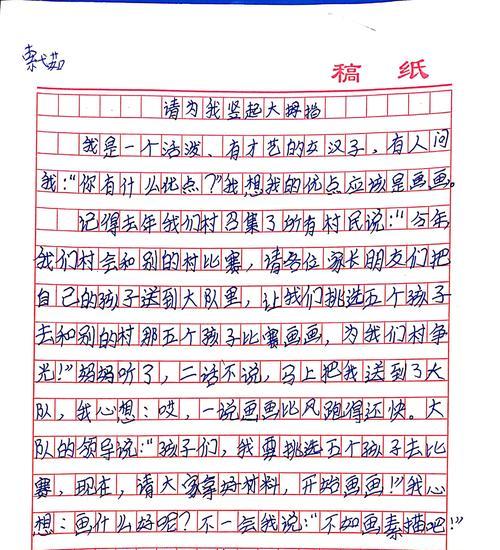 稿 纸
请为我竖起大拇指
我是一个活泼、有才艺的女汉子，有人问
我：“你有什么优点？”我想我的优点应该是画画。
记得去年我们村召集了所有村民说：“今年
我们村会和别的村比赛，请各位家长朋友们把
自己的孩子送到大队里，让我们挑选五个孩子
去和别的村那五个孩子比赛画画，为我们村争
光！”妈妈听了，二话不说，马上把我送到了大
队，我心想：哎，一说画画比风跑得还快。大
队的领导说：“孩子们，我要挑选五个孩子去比
赛，现在，请大家拿好材料，开始画画！”我心
想：画什么好呢？不一会我说：“不如画素描吧！”